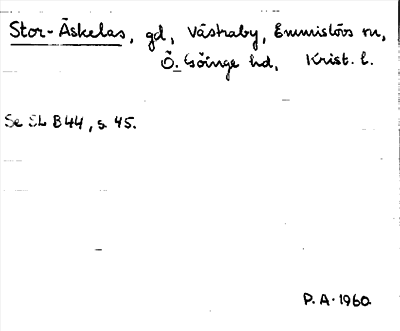 Stor-Äskelas, gd, Västraby, Emmislövs sn,
Ö. Göinge hd, Krist. l.
Se SL B44, s. 45.
P.A. 1960